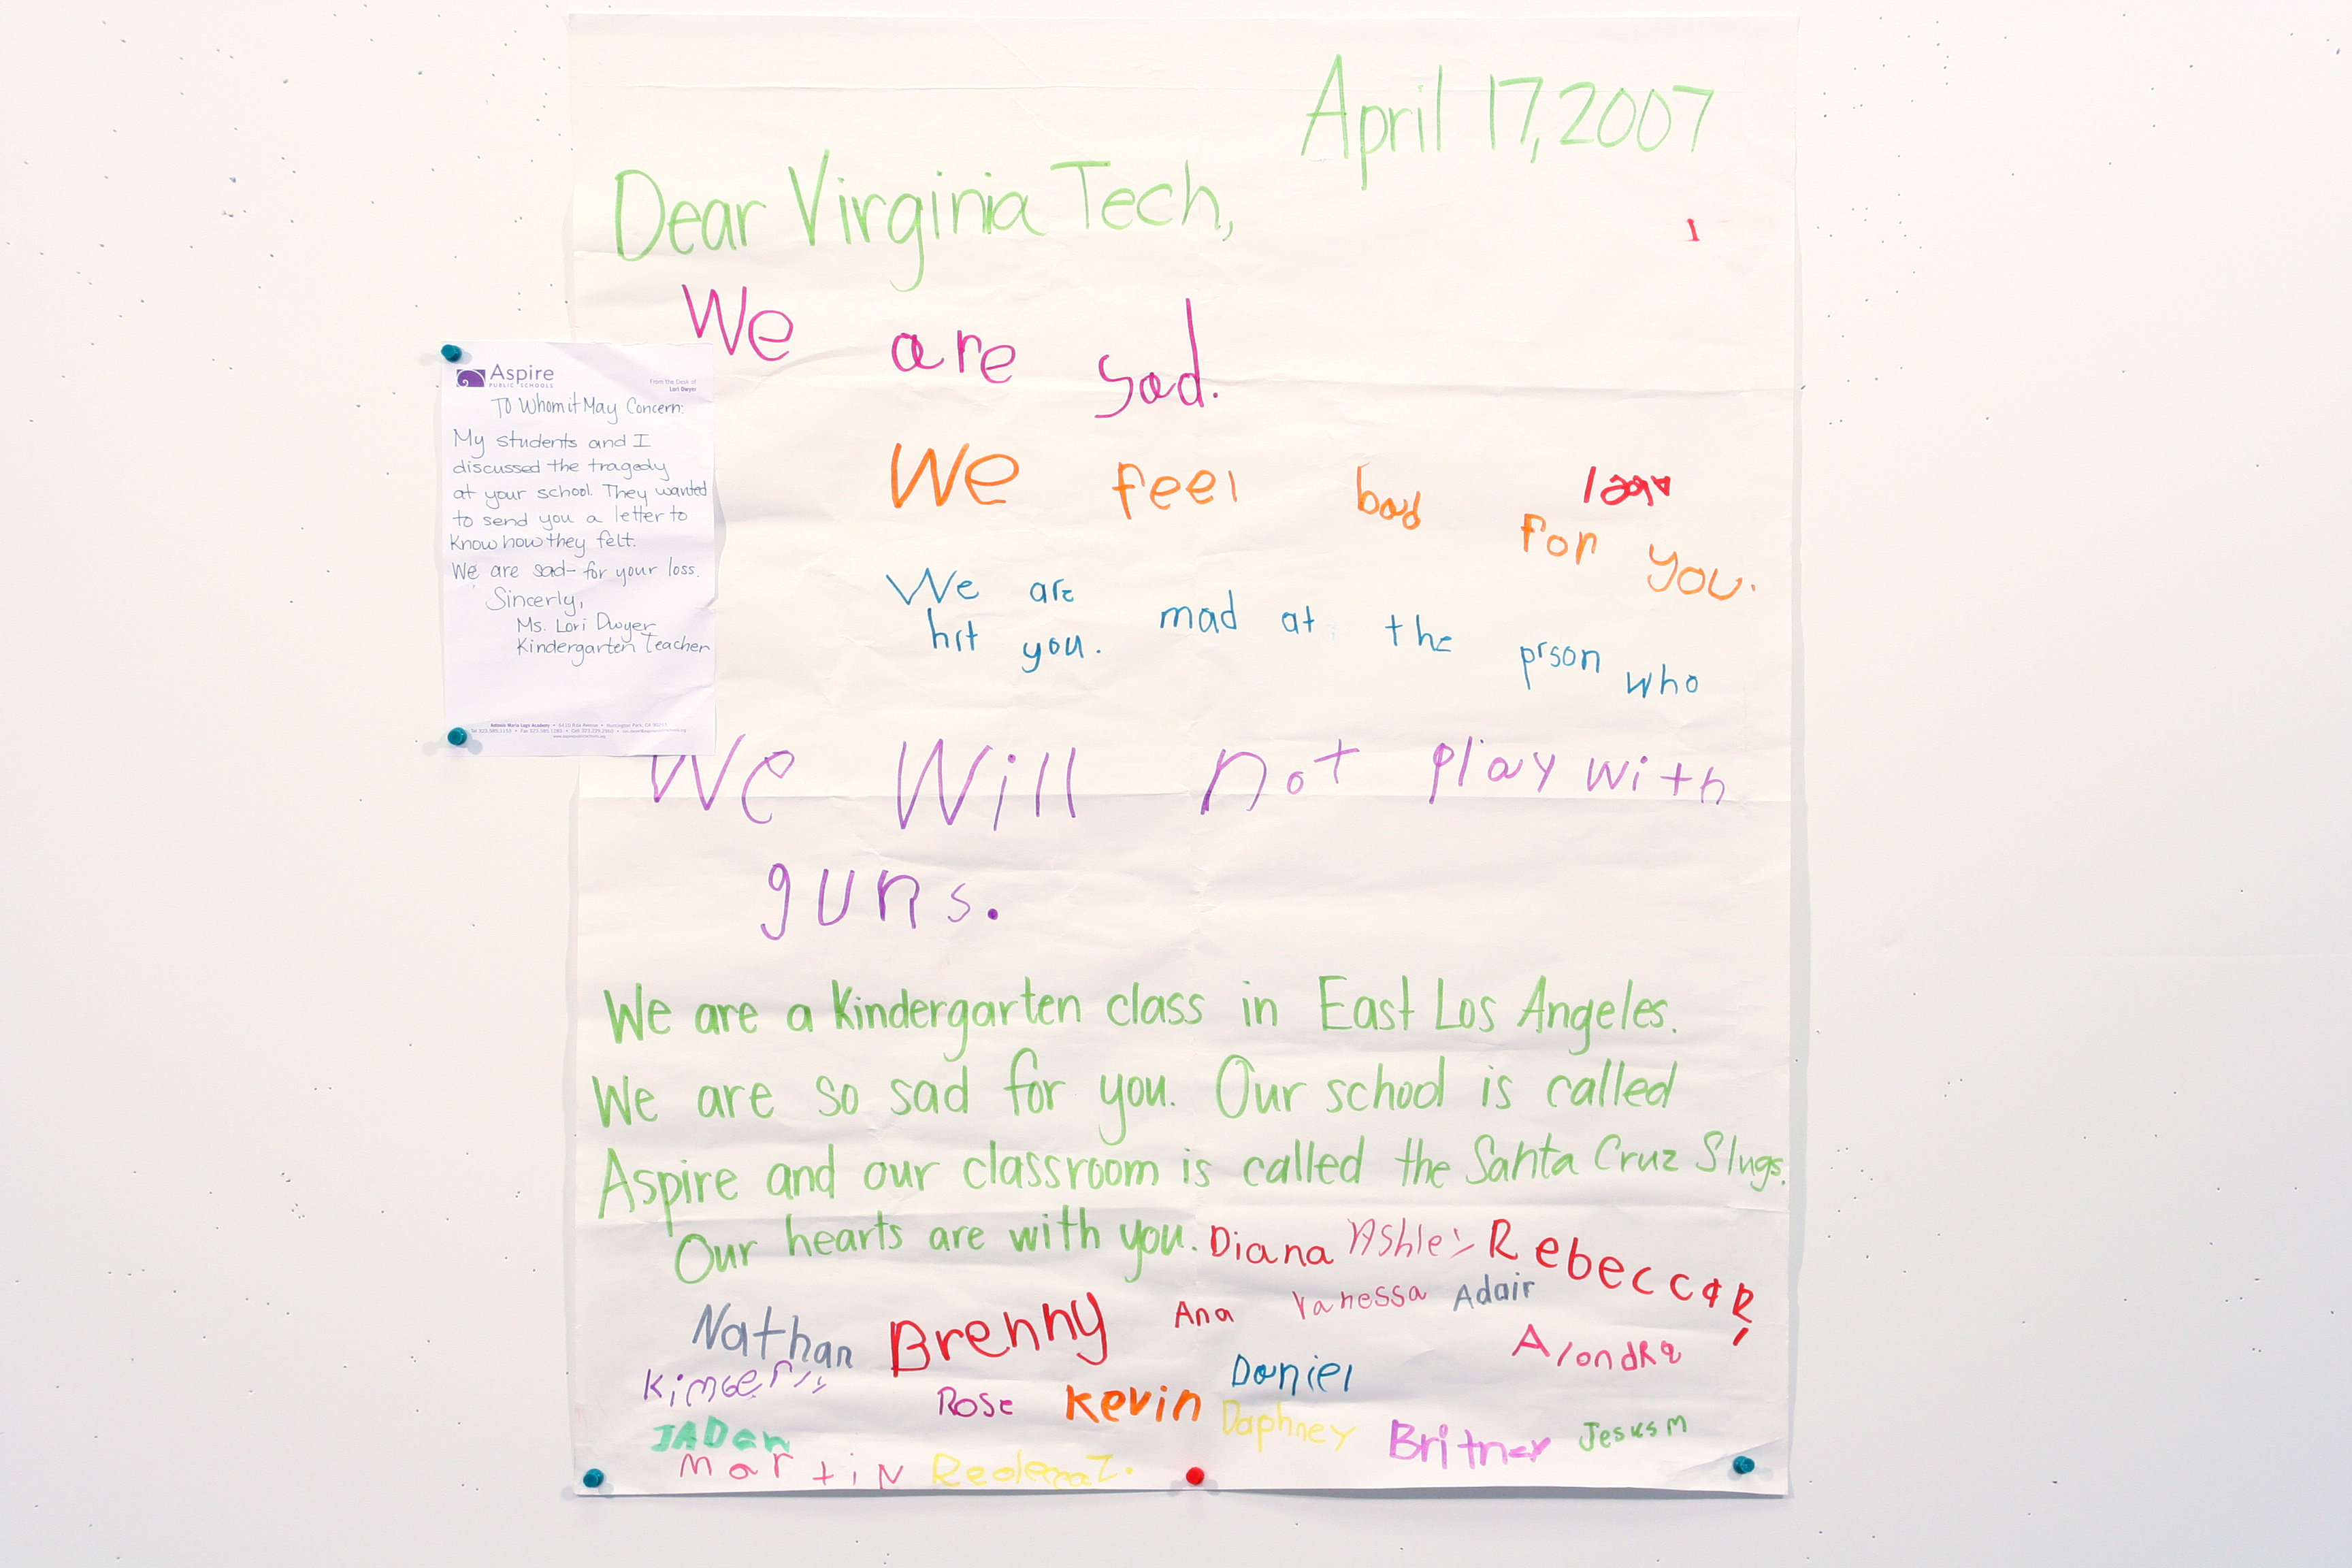 April 17, 2007
Dear Virginia Tech,
We are sad.
We feel bad for you.
We are mad at the prson who
hit you.
We Will not play with
guns.
We are a Kindergarten class in East Los Angeles.
We are so sad for you. Our school is called
Aspire and our classroom is called the Santa Cruz Slugs.
Our hearts are with you. Diana Ashley Rebecca R
Nathan Brenny Ana Vanessa Adair
Alondra
Kimberly Rose Kevin Daniel
JADen Daphney Britney Jesus M
martin
Aspire
PUBLIC SCHOOLS
From the Desk of
Lori Dwyer
To Whom it May Concern:
My students and I
discussed the tragedy
at your school. They wanted
to send you a letter to
Know how they felt.
We are sad for your loss.
Sincerely,
Ms. Lori Dwyer
Kindergarten Teacher
Antonio Maria Lugo Academy • 6410 Rita Avenue • Huntington Park, CA 90255